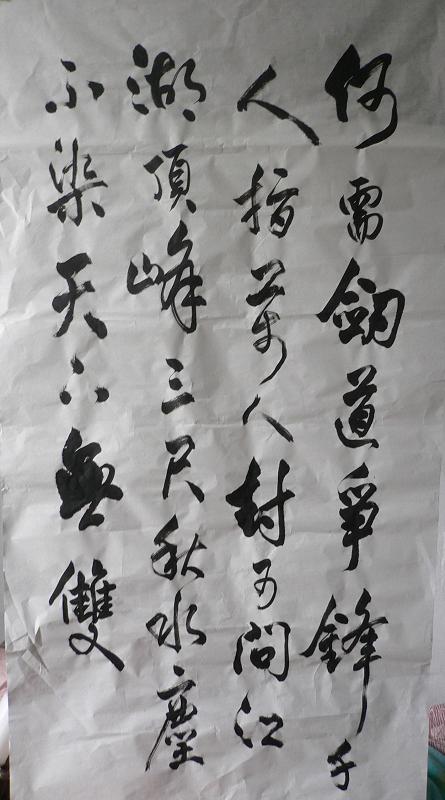 何需劍道爭鋒千
人指萬人封可問江
湖頂峰三尺秋水塵
不染天下無雙